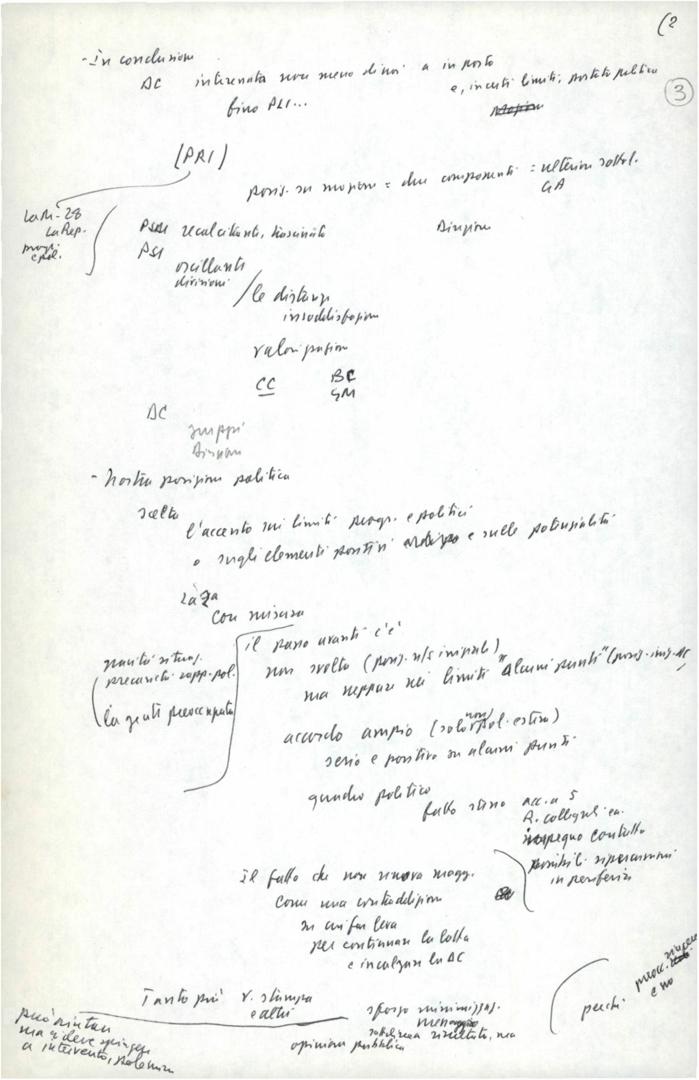 (2
3
- In conclusione
DC interessata non meno di noi a in posto
e, in certi limiti, portata politica
fino PLI...
(PRI)
posiz. su mozione = due componenti = ulteriori
GA
La M- 28
La Rep.
progr.
e pol.
PSDI recalcitante, trascinato
Divisione
PSI
oscillante
divisioni / le distanze
insoddisfazione
valorizzazione
CC BC
GM
DC
gruppi
Divisioni
- Nostra posizione politica
scelta
l'accento sui limiti progr. e politici
o sugli elementi positivi e sulle potenzialità
2ª
Con misura
il passo avanti c'è
non svolta (posiz. n/s iniziale)
ma neppure nei limiti "Alcuni punti" (posiz. iniz. DC)
gravità situaz.
precarietà rapp. pol.
la gente preoccupata
accordo ampio (solo non pol. estera)
serio e positivo su alcuni punti
quadro politico
fatto stesso acc. a 5
R. collegiali
impegno contatto
possibili ripercussioni
in periferia
il fatto che non nuova magg.
come una contraddizione
su cui far leva
per continuare la lotta
e incalzare la DC
Tanto più v. stampa
e altri
sforzo minimizz.
risultato, ma
opinione pubblica
può aiutare
ma si deve spingere
a intervento, polemica
perché preocc.
e no